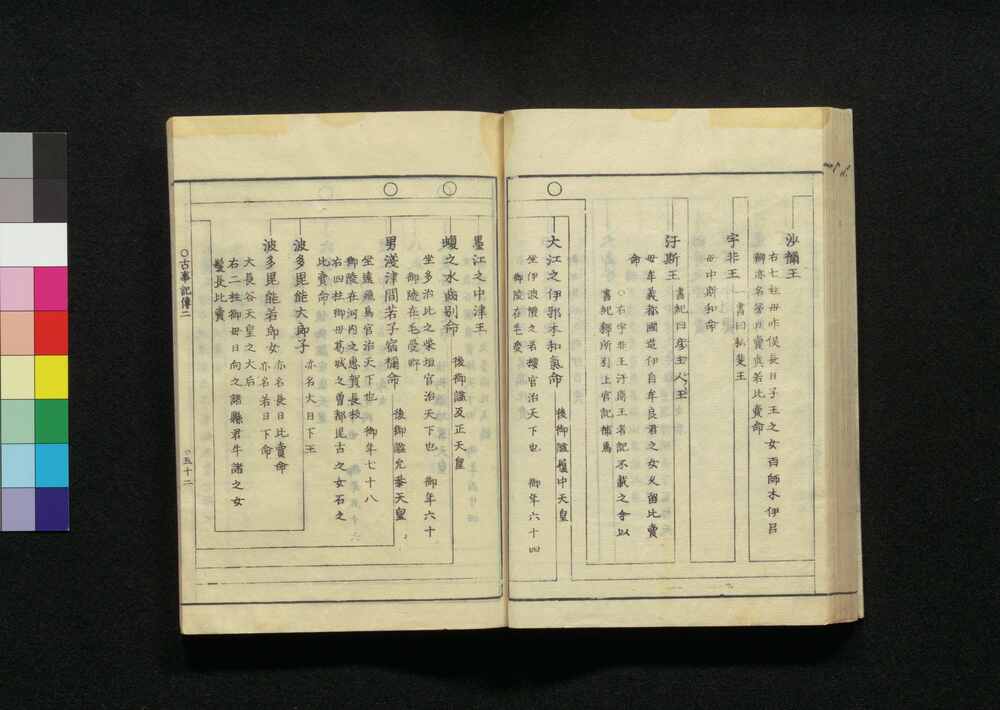 沙禰王
右七柱母咋俣長日子王之女百師木伊呂
辨亦名弟日賣真若比賣命
宇非王 一書曰私斐王
母中斯和命
汙斯王 書紀曰彦主人王
母牟義都國造伊自牟良君之女久留比賣
命
○右宇非王汙斯王名記不載之今以
書紀釋所引上宮記補焉
○
大江之伊邪本和氣命 後御諡履中天皇
坐伊波禮之若櫻宮治天下也 御年六十四
御陵在毛受
墨江之中津王
○
蝮之水齒別命 後御諡反正天皇
坐多治比之柴垣宮治天下也 御年六十
御陵在毛受野
○
男淺津間若子宿禰命 後御諡允恭天皇
坐遠飛鳥宮治天下也 御年七十八
御陵在河内之惠賀長枝
右四柱御母葛城之曾都毘古之女石之
比賣命
波多毘能大郎子 亦名大日下王
波多毘能若郎女 亦名長日比賣命
亦名若日下命
大長谷天皇之大后
右二柱御母日向之諸縣君牛諸之女
髮長比賣
○古事記傳二
○五十二